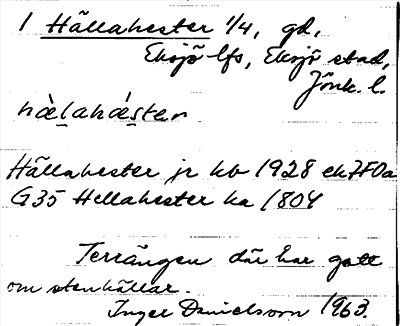 1 Hällahester 1/4, gd,
Eksjö lfs, Eksjö stad,
Jönk. l.
hälahästər
Hällahester jr kb 1928 ek 7F0a
G35 Hellahester ka 1804
Terrängen där har gott
om stenhällar.
Inger Danielsson 1963.